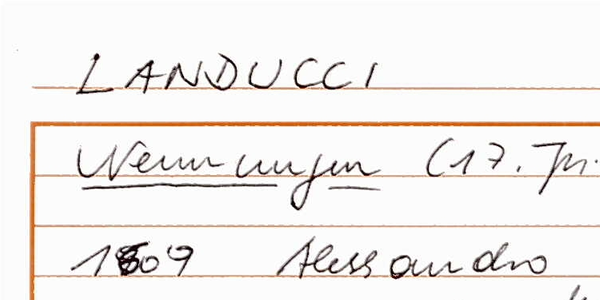 LANDUCCI
Nennungen (17. Jh.
1609 Alessandro